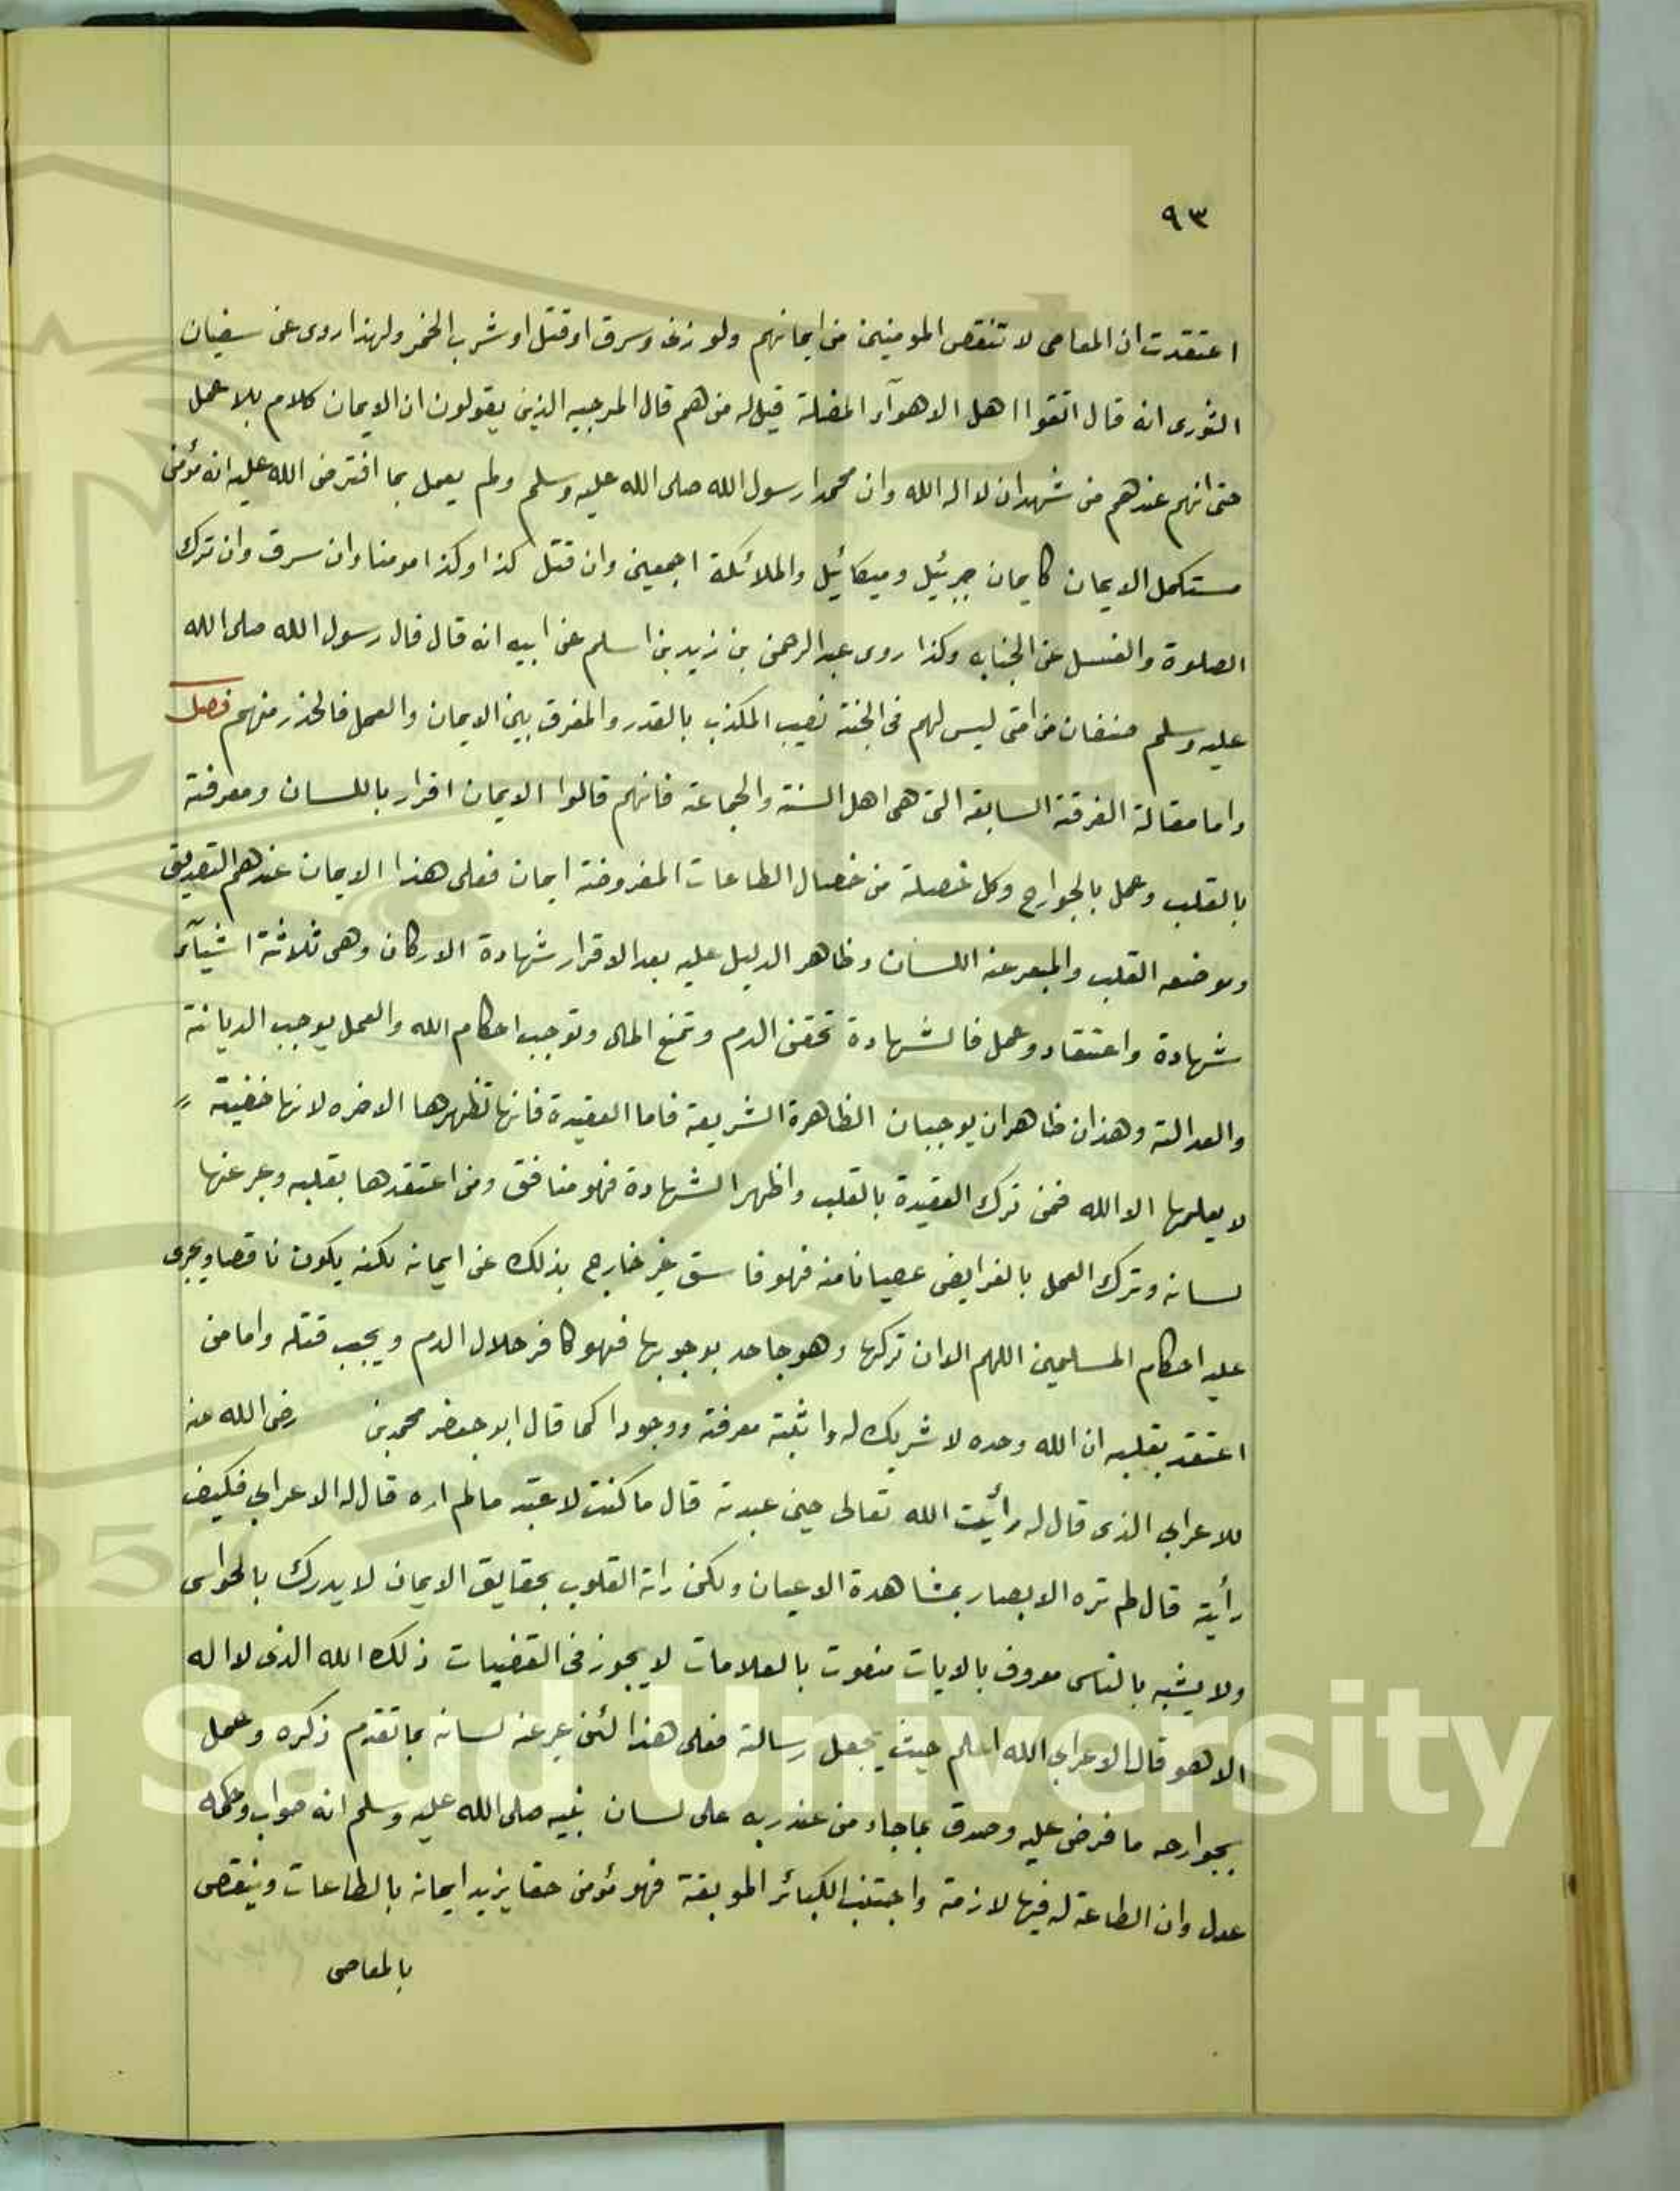 ٩٣
اعتقدت ان المعاصى لا تنقص المومنين من ايمانهم ولو زنا وسرق او قتل او شرب الخمر ولهذا روى عن سفيان
الثورى انه قال اتقوا اهل الاهوآء المضلة قيل له من هم قال المرجيه الذين يقولون ان الايمان كلام بلا عمل
حتى انهم عندهم من شهد ان لا اله الله وان محمدا رسول الله صلى الله عليه وسلم ولم يعمل بما افترض الله عليه انه مؤمن
مستكمل الايمان كايمان جبرئيل وميكائيل والملائكة اجمعين وان قتل كذا وكذا مومنا وان سرق وان ترك
الصلوة والغسل عن الجنابه وكذا روى عبد الرحمن بن زيد بن اسلم عن ابيه انه قال قال رسول الله صلى الله
عليه وسلم صنفان من امتى ليس لهم فى الجنة نصيب المكذب بالقدر والمفرق بين الايمان والعمل فالحذر منهم فصل
واما مقالة الفرقة السابقه التى هى اهل السنة والجماعة فانهم قالوا الايمان اقرار باللسان ومعرفة
بالقلب وعمل بالجوارح وكل خصلة من خصال الطاعات المفروضة ايمان فعلى هذا الايمان عندهم التصديق
وموضعه القلب والمعبر عنه اللسان وظاهر الدليل عليه بعد الاقرار شهادة الاركان وهى ثلاثة اشيآء
شهادة واعتقاد وعمل فالشهادة تحقن الدم وتمنع المال وتوجب احكام الله والعمل يوجب الديانة
والعدالة وهذان ظاهران يوجبان الظاهرة الشريعة فاما العقيدة فانها تظهرها الاخره لانها خفية
لا يعلمها الا الله فمن ترك العقيدة بالقلب واظهر الشهادة فهو منافق ومن اعتقدها بقلبه وعبر عنها
لسانه وترك العمل بالفرايض عصيانا منه فهو فاسق غير خارج بذلك عن ايمانه لكنه يكون ناقصا ويجرى
عليه احكام المسلمين اللهم الا ان تركها وهو جاحد بوجوبها فهو كافر حلال الدم ويجب قتله واما من
اعتقد بقلبه ان الله وحده لا شريك له واثبته معرفة ووجودا كما قال ابو جعفر محمد بن رضى الله عنه
للاعرابي الذى قال له رأيت الله تعالى حين عبدته قال ما كنت لاعبد مالم اره قال له الاعرابي فكيف
رأيته قال لم تره الابصار بمشاهدة الاعيان ولكن راته القلوب بحقايق الايمان لا يدرك بالحواس
ولا يشبه بالناس معروف بالايات منعوت بالعلامات لا يجوز فى القضيات ذلك الله الذى لا اله
الا هو قال الاعرابي الله اعلم حيث يجعل رسالته فعلى هذا لئن عبر عنه لسانه بما تقدم ذكره وعمل
بجوارحه ما فرض عليه وصدق بما جاء من عند ربه على لسان نبيه صلى الله عليه وسلم انه صواب وحكمه
عدل وان الطاعة له فيها لازمة واجتنب الكبائر الموبقة فهو مؤمن حقا يزيد ايمانه بالطاعات وينقص
بالمعاصى
g Saud University